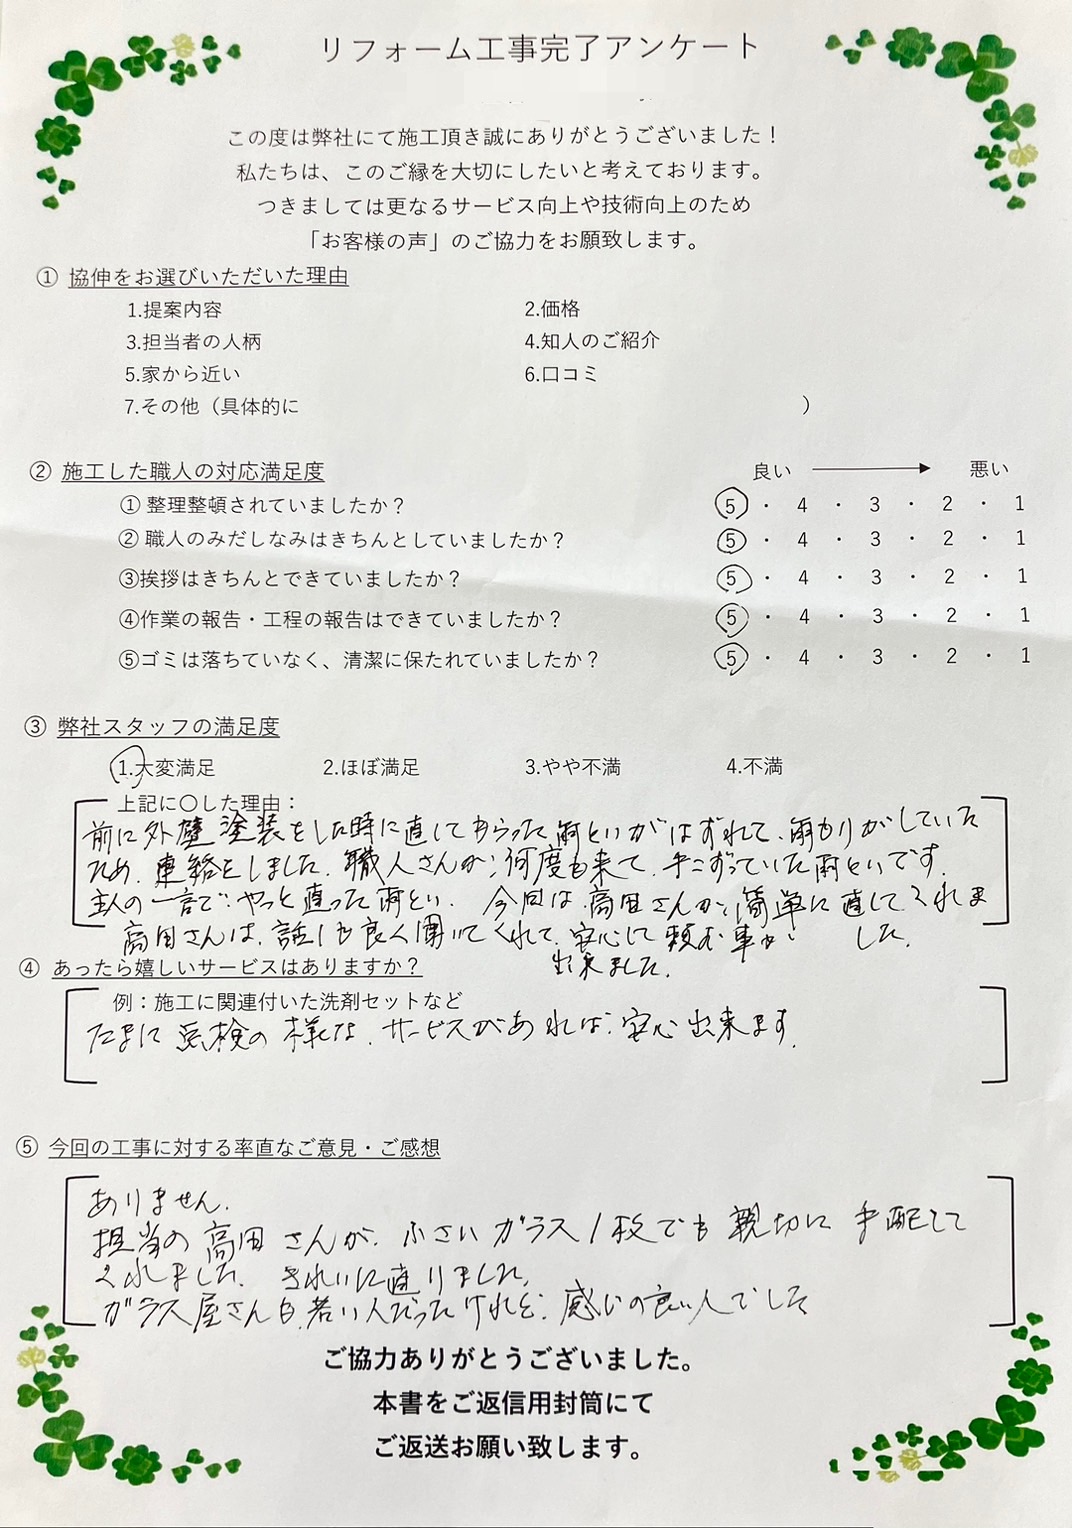 リフォーム工事完了アンケート
この度は弊社にて施工頂き誠にありがとうございました！
私たちは、このご縁を大切にしたいと考えております。
つきましては更なるサービス向上や技術向上のため
「お客様の声」のご協力をお願致します。
① 協伸をお選びいただいた理由
1.提案内容 2.価格
3.担当者の人柄 4.知人のご紹介
5.家から近い 6.口コミ
7.その他（具体的に ）
② 施工した職人の対応満足度 良い 悪い
① 整理整頓されていましたか？ 5 ・ 4 ・ 3 ・ 2 ・ 1
② 職人のみだしなみはきちんとしていましたか？ 5 ・ 4 ・ 3 ・ 2 ・ 1
③挨拶はきちんとできていましたか？ 5 ・ 4 ・ 3 ・ 2 ・ 1
④作業の報告・工程の報告はできていましたか？ 5 ・ 4 ・ 3 ・ 2 ・ 1
⑤ゴミは落ちていなく、清潔に保たれていましたか？ 5 ・ 4 ・ 3 ・ 2 ・ 1
③ 弊社スタッフの満足度
1.大変満足 2.ほぼ満足 3.やや不満 4.不満
上記に〇した理由：
前に外壁塗装をした時に直してもらった雨といがはずれて、雨もりがしていた
ため、連絡をしました。職人さんが、何度も来て、手こずっていた雨といです。
主人の一言で、やっと直った雨とい。 今回は、高田さんが、簡単に直してくれま
した。
高田さんは、話しも良く聞いてくれて、安心して頼む事が
出来ました。
④ あったら嬉しいサービスはありますか？
例：施工に関連付いた洗剤セットなど
たまに点検の様な、サービスがあれば、安心出来ます。
⑤ 今回の工事に対する率直なご意見・ご感想
ありません。
担当の高田さんが、小さいガラス1枚でも親切に手配して
くれました。 きれいに直りました。
ガラス屋さんも、若い人だったけれど、感じの良い人でした
ご協力ありがとうございました。
本書をご返信用封筒にて
ご返送お願い致します。